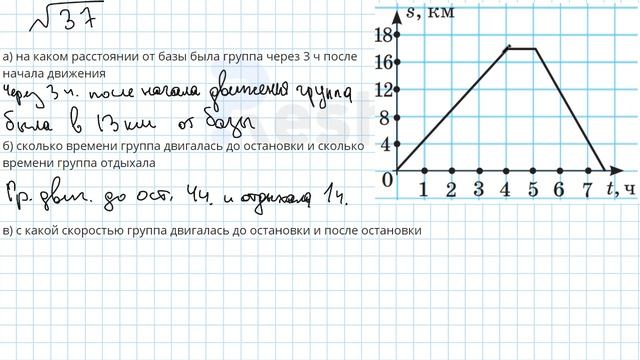 √37
а) на каком расстоянии от базы была группа через 3 ч после
начала движения
Через 3 ч. после начала движения группа
была в 13 км от базы
б) сколько времени группа двигалась до остановки и сколько
времени группа отдыхала
Гр. двиг. до ост. 4ч. и отдыхала 1ч.
в) с какой скоростью группа двигалась до остановки и после остановки
s, км
18
16
12
8
4
0
1 2 3 4 5 6 7 t, ч